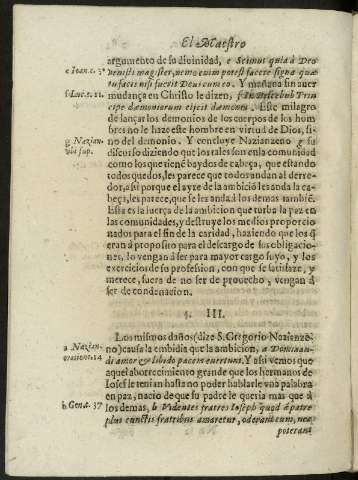 El Maestro
argumento de su divinidad, e Scimus quia à Deo
e Ioan. c. 3
venisti magister, nemo enim potest facere signa quæ
tu facis nisi fuerit Deus cum eo. Y mañana sin aver
mudança en Christo le dizen, f In Belcebub Prin
f Luc. c. 11.
cipe dæmoniorum eijcit dæmones. Este milagro
de lançar los demonios de los cuerpos de los hom
bres no le haze este hombre en virtud de Dios, si-
no del demonio. Y concluye Nazianzeno g su
g Nazian.
vbi sup.
discurso diziendo que los tales son en la comunidad
como los que tiene baydos de cabeça, que estando
todos quedos, les parece que todo andan al derre-
dor, assi porque el ayre de la ambiciõ les anda la ca-
beça, les parece, que se les anda á los demas tambiẽ.
Esta es la fuerça de la ambicion que turba la paz en
las comunidades, y destruye los medios proporcio
nados para el fin de la caridad, haziendo que los q̃
eran á proposito para el descargo de sus obligacio-
nes, lo vengan á ser para mayor cargo suyo, y los
exercicios de su profession, con que se satisfaze, y
merece, fuera de no ser de provecho, vengan á
ser de condenacion.
§. III.
Los mismos daños (dize S. Gregorio Nazienze
no) causa la embidia que la ambicion, a Dominan-
a Nazian.
oratione. 14
di amor & libido pacem evertunt. Y assi vemos que
aquel aborrecimiento grande que los hermanos de
Iosef le tenian hasta no poder hablarle vna palabra
en paz, nacio de que su padre le queria mas que à
los demas, b Videntes fratres Ioseph quod á patre
b Gene. 37
plus cunctis fratribus amaretur, oderant eum, nec
poterant